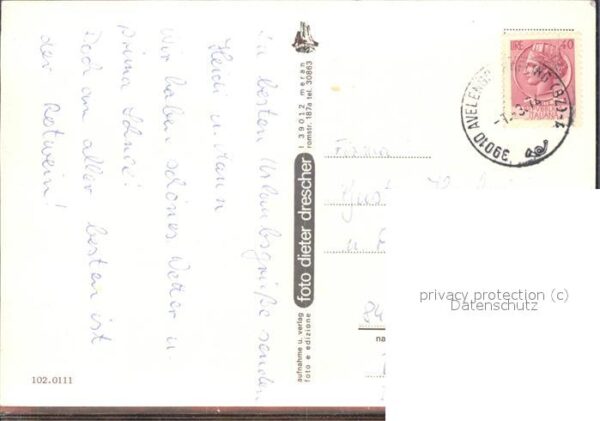 Die besten Urlaubsgrüße senden
Heidi u. Mann
Wir haben schönes Wetter u.
prima Schnee!
Doch am aller besten ist
der Rotwein!
I 39012 meran
romstr. 187a tel. 30863
foto dieter drescher
aufnahme u. verlag
foto e edizione
102.0111
LIRE 40
ITALIANA
39010 AVELENGO
Firma
u.
84
na
privacy protection (c)
Datenschutz